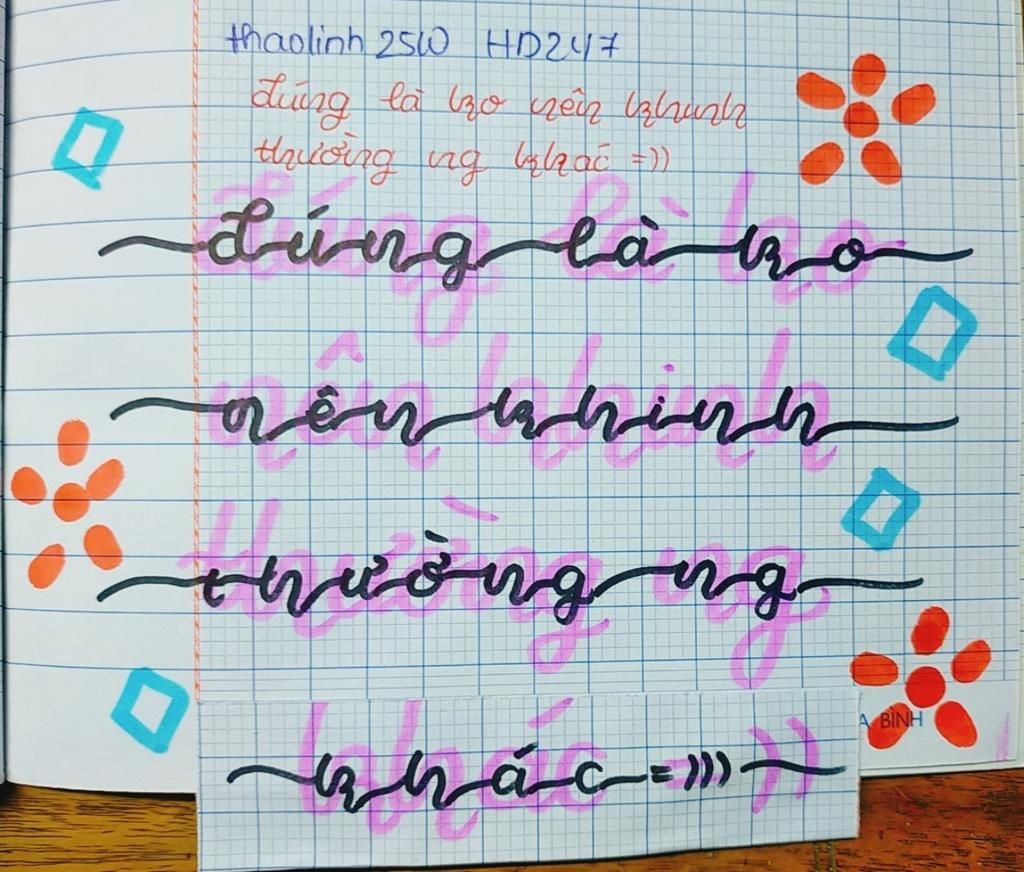 thaolinh 25W HD247
đúng là ko nên khinh
thường ng khác =))
đúng là ko
nên khinh
thường ng
A BÌNH
khác =)))